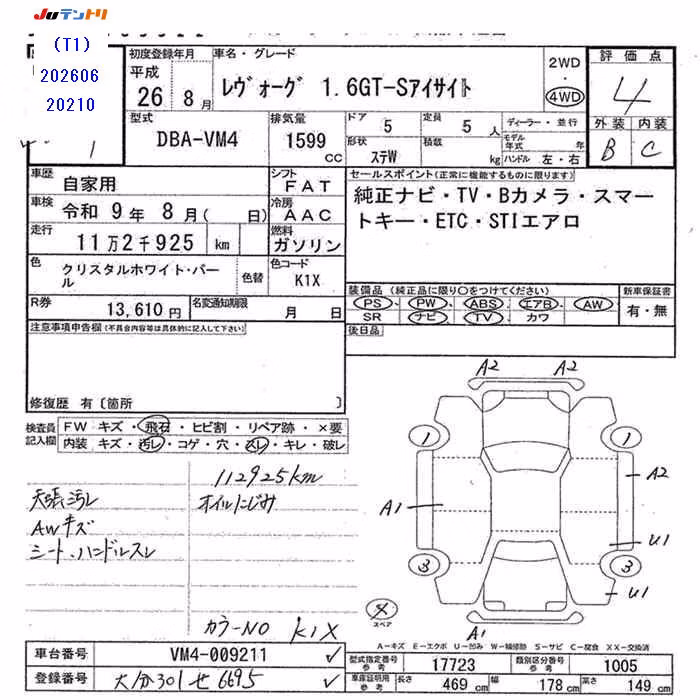 JUテントリ
(T1)
202606
20210
初度登録年月
平成
26年 8月
車名・グレード
レヴォーグ 1.6GT-Sアイサイト
2WD
・
4WD
評価点
4
外装 内装
B C
1
型式
DBA-VM4
排気量
1599
CC
ドア 5
定員 5 人
形状 ステW
積載 kg
ディーラー・並行
モデル年式 年
ハンドル 左・右
車歴 自家用
シフト FAT
車検 令和 9年 8月( 日)
冷房 AAC
走行 11万2千925 km
燃料 ガソリン
色 クリスタルホワイト・パール
色替
色コード K1X
R券 13,610円
名変通知期限 月 日
セールスポイント(正常に機能するものに限ります)
純正ナビ・TV・Bカメラ・スマー
トキー・ETC・STIエアロ
装備品(純正品に限り○をつけてください)
PS、PW、ABS、エアB、AW、
SR ナビ、TV、カワ
新車保証書
有・無
後日品
注意事項申告欄(不具合内容等は具体的に記入して下さい)
修復歴 有〔箇所 〕
検査員記入欄
FW キズ・飛石・ヒビ割・リペア跡・×要
内装 キズ・汚レ・コゲ・穴・スレ・キレ・破レ
112925km
天張汚レ
オイルにじみ
AWキズ
シート、ハンドルスレ
カラーNO K1X
A2 A2
1 1
A2
A1
U1
3 3
U1
スペア
A1
A-キズ E-エクボ U-凹み W-補修跡 S-サビ C-腐食 XX-交換済
車台番号 VM4-009211 ✓
登録番号 大分301せ6695 ✓
型式指定番号 参考 17723
類別区分番号 参考 1005
車庫証明用 参考 長さ 469 cm 幅 178 cm 高さ 149 cm